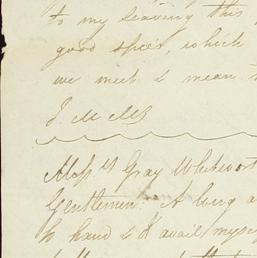 to my leaving this
good spies, which
we meet & mean
J. M. M
Messrs Gray Whitwort
Gentlemen. A long a
to hand & I avail myse